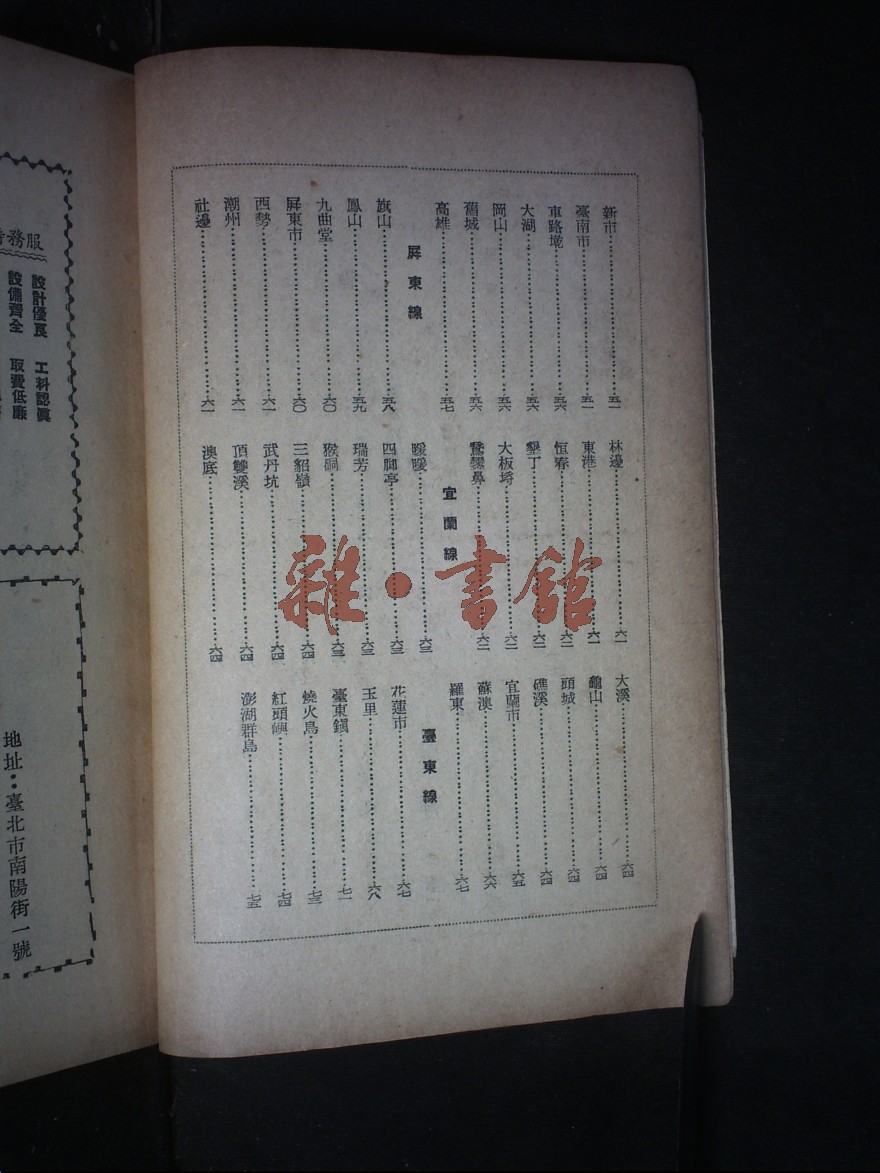 新市……五一
臺南市……五一
車路墘……五六
大湖……五六
岡山……五六
舊城……五六
高雄……五七
屏東線
旗山……五八
鳳山……五九
九曲堂……六〇
屏東市……六〇
西勢……六一
潮州……六一
社邊……六一
林邊……六一
東港……六一
恒春……六二
墾丁……六二
大板埓……六二
鵞鑾鼻……六二
宜蘭線
暖暖……六三
四脚亭……六三
瑞芳……六三
猴硐……六三
三貂嶺……六四
武丹坑……六四
頂雙溪……六四
澳底……六四
大溪……六四
龜山……六四
頭城……六四
礁溪……六四
宜蘭市……六五
蘇澳……六六
羅東……六七
臺東線
花蓮市……六七
玉里……六八
臺東鎭……七一
燒火島……七三
紅頭嶼……七四
澎湖群島……七五
雜·書館
服務
設計優良 工料認眞
設備齊全 取費低廉
地址：臺北市南陽街一號